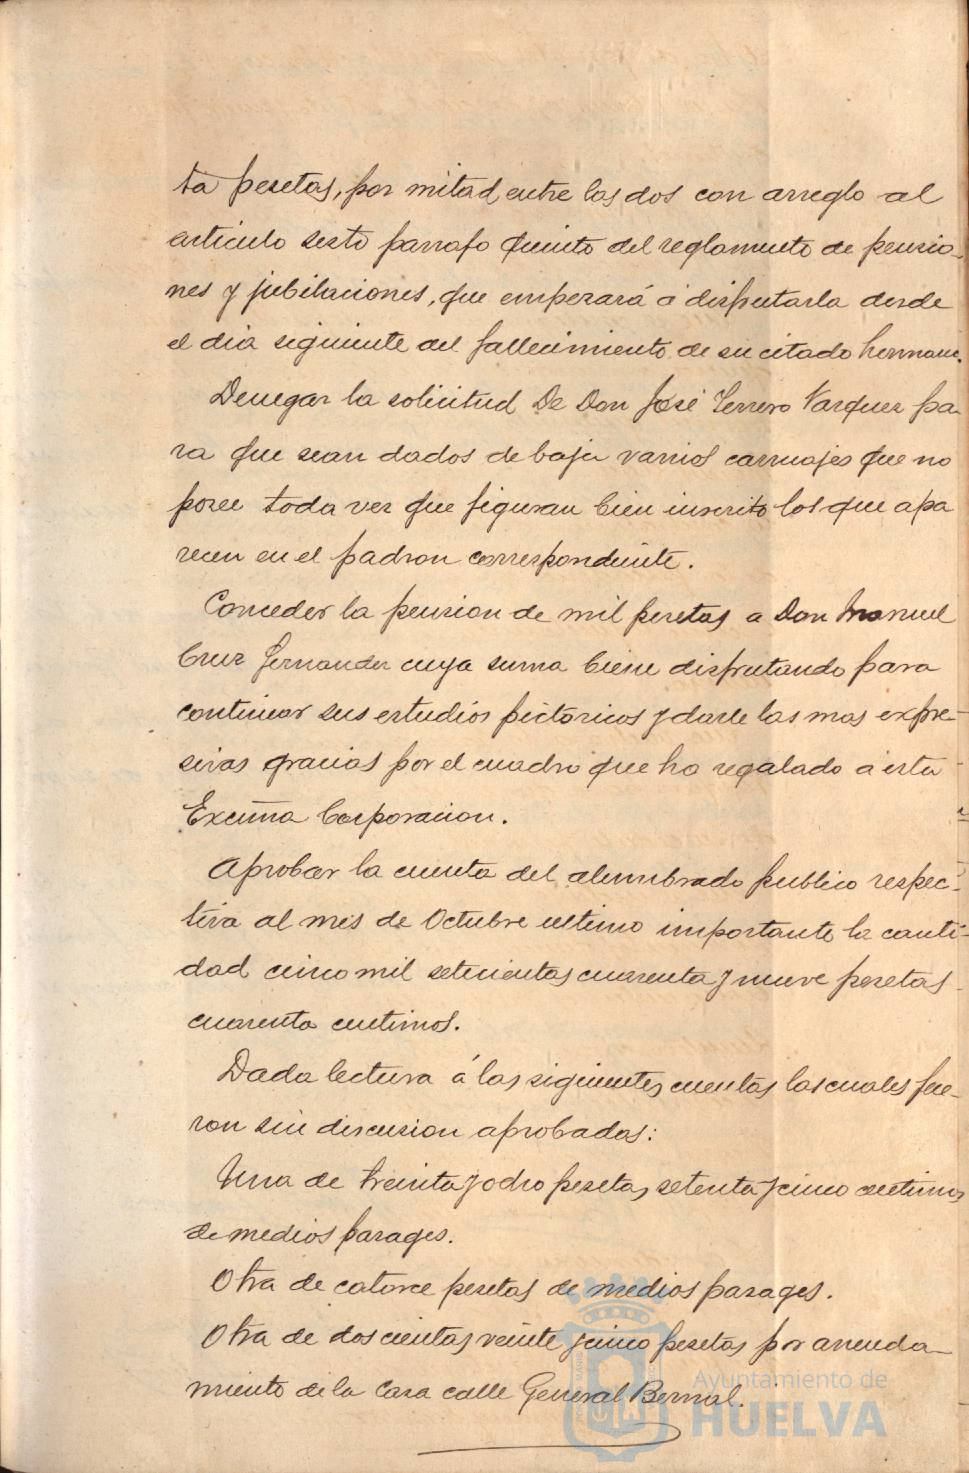 ta pesetas, por mitad entre los dos con arreglo al
articulo sesto parrafo quinto del reglamento de pensio-
nes y jubilaciones, que empezará á disfrutarla desde
el dia siguiente del fallecimiento de su citado hermano.
Denegar la solicitud De Don José Terrero Vazquez pa-
ra que sean dados de baja varios carruajes que no
posee toda vez que figuran bien inscrito los que apa
recen en el padron correspondiente.
Conceder la pension de mil pesetas a Don Manuel
Cruz Fernandez cuya suma biene disfrutando para
continuar sus estudios pictoricos y darle las mas expre-
sivas gracias por el cuadro que ha regalado a esta
Excma Corporacion.
Aprobar la cuenta del alumbrado publico respec-
tiva al mes de Octubre ultimo importante la canti-
dad cinco mil setecientas cuarenta y nueve pesetas
cuarenta centimos.
Dada lectura á las siguientes cuentas las cuales fue-
ron sin discusion aprobadas:
Una de treinta y ocho pesetas setenta y cinco centimos
de medios parages.
Otra de catorce pesetas de medios parages.
Otra de doscientas veinte y cinco pesetas por arrenda-
miento de la Casa calle General Bernal.
Ayuntamiento de
HUELVA